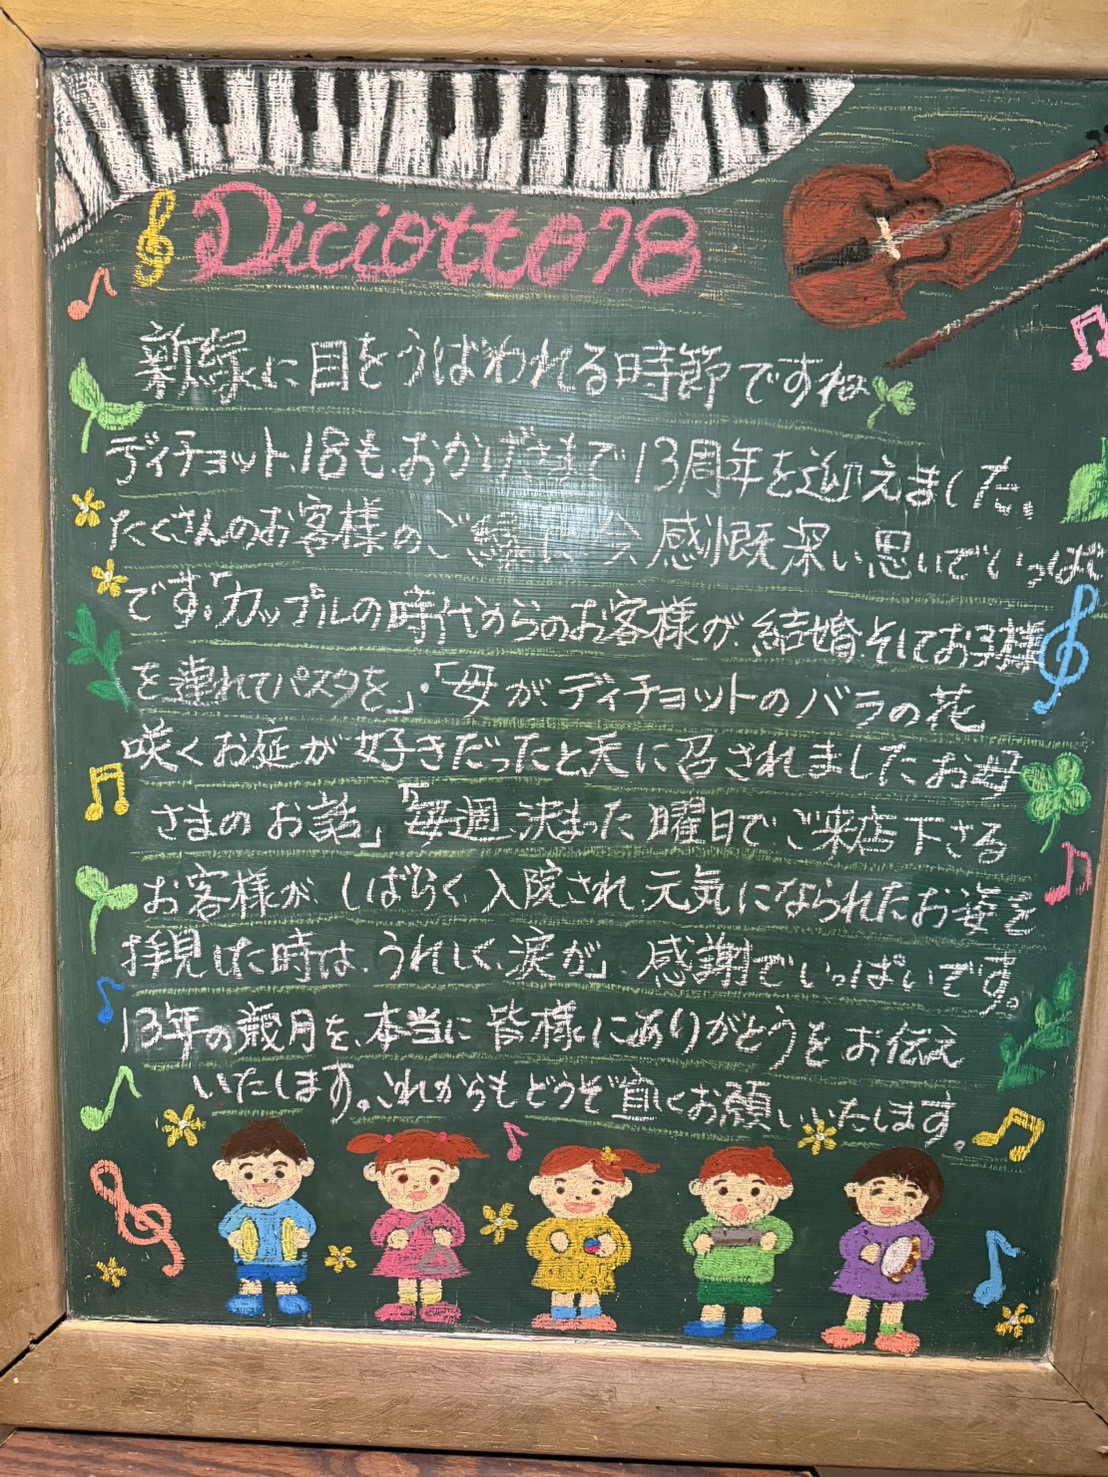 Diciotto18
新緑に目をうばわれる時節ですね
ディチョット18も、おかげさまで13周年を迎えました。
たくさんのお客様の、ご縁に、今、感慨深い思いでいっぱい
です。「カップルの時代からのお客様が、結婚、そしてお子様
を連れてパスタを」・「母が、ディチョットのバラの花
咲くお庭が好きだったと天に召されましたお母
さまのお話」「毎週、決まった曜日でご来店下さる
お客様が、しばらく、入院され、元気になられたお姿を
拝見した時は、うれしく、涙が」感謝でいっぱいです。
13年の歳月を、本当に皆様にありがとうをお伝え
いたします。これからもどうぞ宜しくお願いいたします。